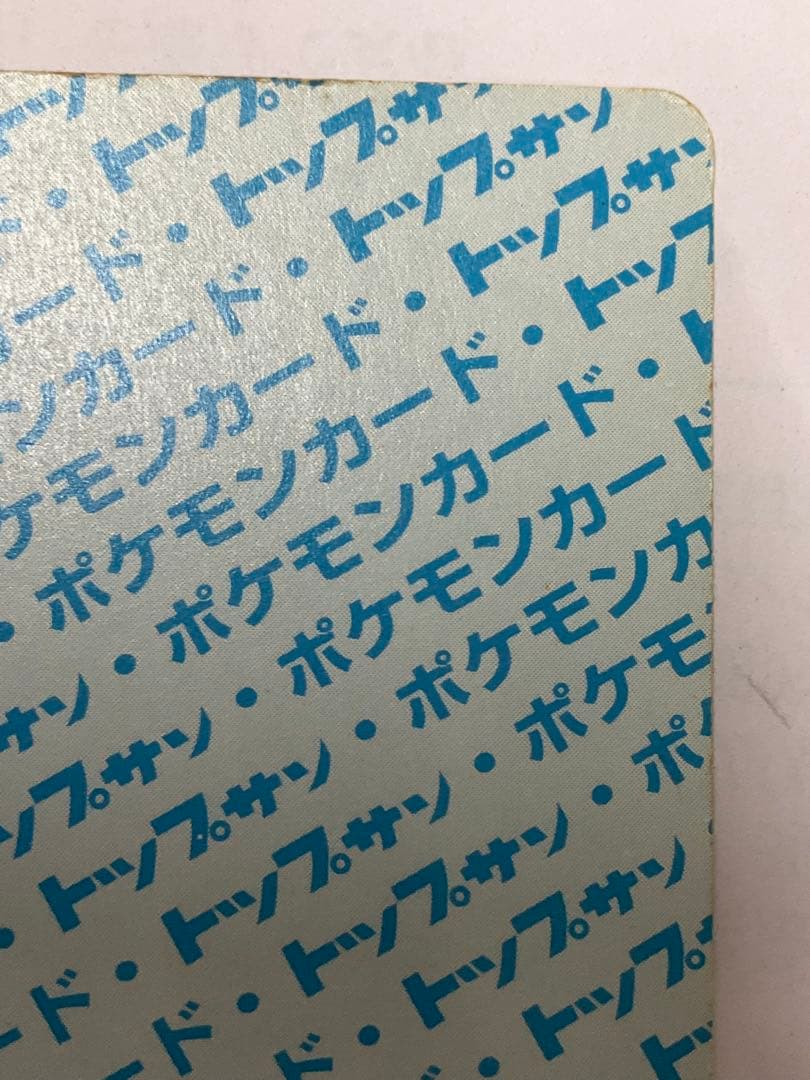 ・トップ
ード・トップサ
ンカード・トップサン
ケモンカード・トップサン
・ポケモンカード・トップ
サン・ポケモンカード・ト
プサン・ポケモンカード
・トップサン・ポケモンカ
ド・トップサン・ポケモ
ード・トップサン・ポ
ド・トップサン
・トップ
ト